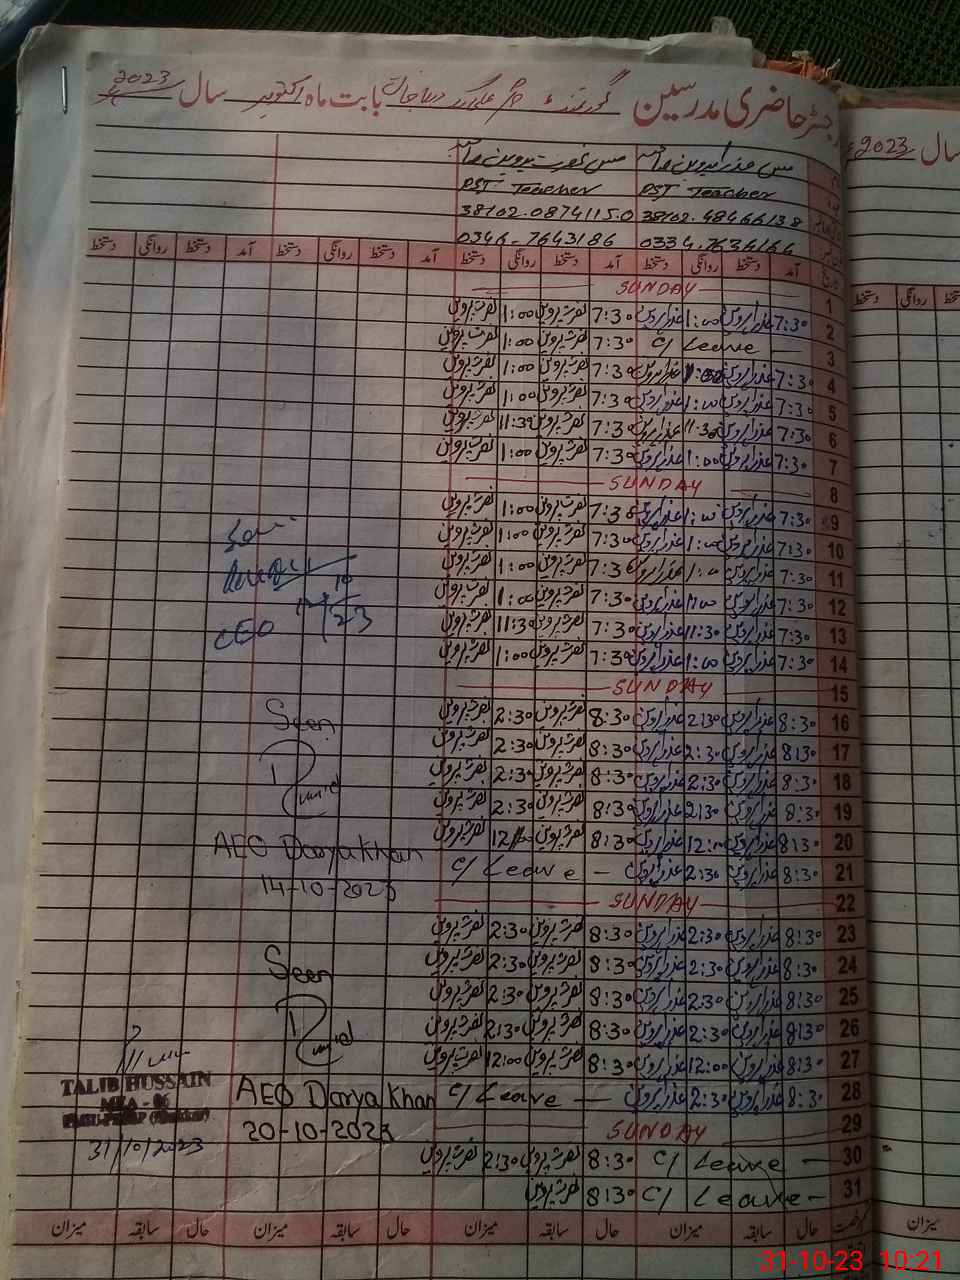 رجسٹر حاضری مدرسین گورنمنٹ بابت ماہ اکتوبر سال 2023
سال 2023
مس عذرا پروین مس نصرت پروین
PST Teacher PST Teacher
38102.4846613-8 38102.0874115.0
0334.7634166 0346-7643186
آمد دستخط روانگی دستخط آمد دستخط روانگی دستخط آمد دستخط روانگی دستخط آمد دستخط روانگی دستخط
1 SUNDAY
2 7:30 عذرا پروین 1:00 عذرا پروین 7:30 نصرت پروین 1:00 نصرت پروین
3 C/Leave 7:30 نصرت پروین 1:00 نصرت پروین
4 7:30 عذرا پروین 1:00 عذرا پروین 7:30 نصرت پروین 1:00 نصرت پروین
5 7:30 عذرا پروین 1:00 عذرا پروین 7:30 نصرت پروین 1:00 نصرت پروین
6 7:30 عذرا پروین 11:30 عذرا پروین 7:30 نصرت پروین 11:30 نصرت پروین
7 7:30 عذرا پروین 1:00 عذرا پروین 7:30 نصرت پروین 1:00 نصرت پروین
8 SUNDAY
9 7:30 عذرا پروین 1:00 عذرا پروین 7:30 نصرت پروین 1:00 نصرت پروین
10 7:30 عذرا پروین 1:00 عذرا پروین 7:30 نصرت پروین 1:00 نصرت پروین
11 7:30 عذرا پروین 1:00 عذرا پروین 7:30 نصرت پروین 1:00 نصرت پروین
12 7:30 عذرا پروین 1:00 عذرا پروین 7:30 نصرت پروین 1:00 نصرت پروین
13 7:30 عذرا پروین 11:30 عذرا پروین 7:30 نصرت پروین 11:30 نصرت پروین
14 7:30 عذرا پروین 1:00 عذرا پروین 7:30 نصرت پروین 1:00 نصرت پروین
15 SUNDAY
16 8:30 عذرا پروین 2:30 عذرا پروین 8:30 نصرت پروین 2:30 نصرت پروین
17 8:30 عذرا پروین 2:30 عذرا پروین 8:30 نصرت پروین 2:30 نصرت پروین
18 8:30 عذرا پروین 2:30 عذرا پروین 8:30 نصرت پروین 2:30 نصرت پروین
19 8:30 عذرا پروین 2:30 عذرا پروین 8:30 نصرت پروین 2:30 نصرت پروین
20 8:30 عذرا پروین 12:00 عذرا پروین 8:30 نصرت پروین 12:00 نصرت پروین
21 8:30 عذرا پروین 2:30 عذرا پروین C/Leave
22 SUNDAY
23 8:30 عذرا پروین 2:30 عذرا پروین 8:30 نصرت پروین 2:30 نصرت پروین
24 8:30 عذرا پروین 2:30 عذرا پروین 8:30 نصرت پروین 2:30 نصرت پروین
25 8:30 عذرا پروین 2:30 عذرا پروین 8:30 نصرت پروین 2:30 نصرت پروین
26 8:30 عذرا پروین 2:30 عذرا پروین 8:30 نصرت پروین 2:30 نصرت پروین
27 8:30 عذرا پروین 12:00 عذرا پروین 8:30 نصرت پروین 12:00 نصرت پروین
28 8:30 عذرا پروین 2:30 عذرا پروین C/Leave
29 SUNDAY
30 C/Leave 8:30 نصرت پروین 2:30 نصرت پروین
31 C/Leave 8:30 نصرت پروین
CEO
Seen
AEO Daryakhan
14-10-2023
Seen
AEO Darya Khan
20-10-2023
TALIB HUSSAIN
MEA - 06
31/10/2023
حال سابقہ میزان حال سابقہ میزان حال سابقہ میزان حال سابقہ میزان
روانگی دستخط
میزان
31-10-23 10:21